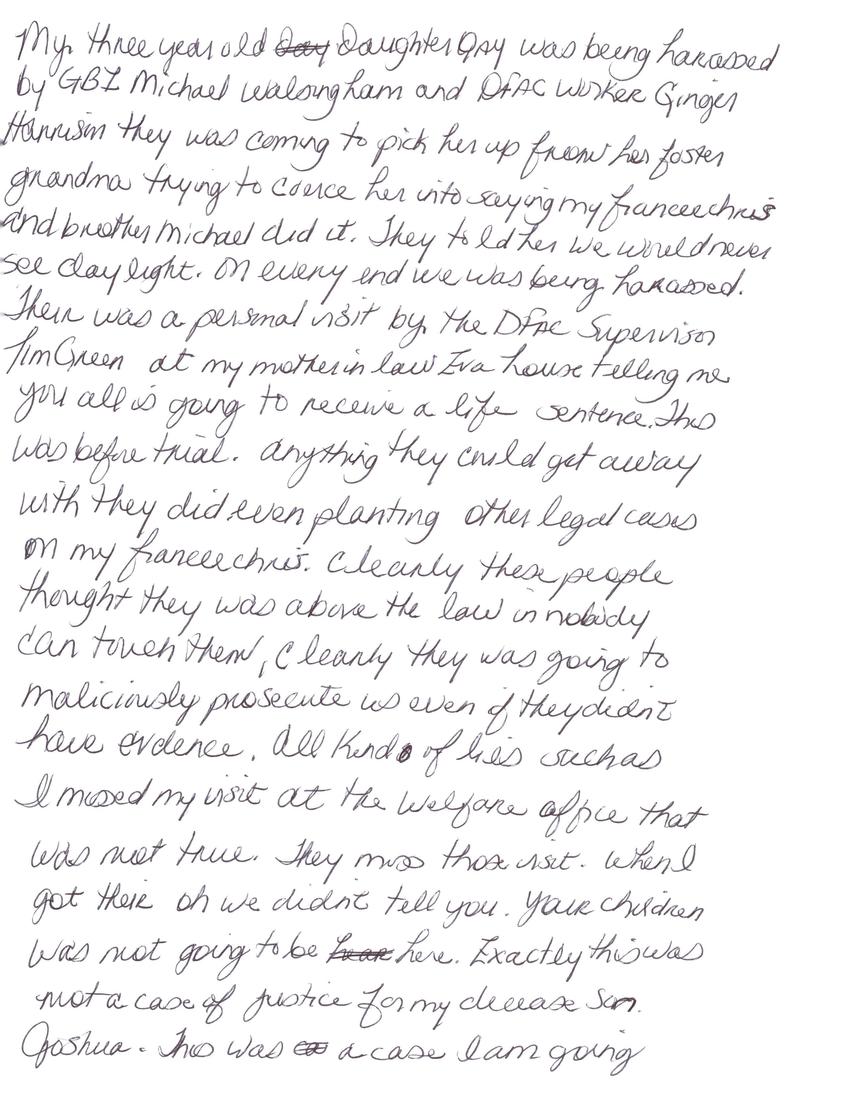 My three year old day Daughter Jay was being harassed
by GBI Michael Walsingham and DFAC worker Ginger
Harrison they was coming to pick her up from her foster
grandma trying to coerce her into saying my francee chris
and brother Michael did it. They told her we would never
see day light. On every end we was being harassed.
Their was a personal visit by the DFAC Supervisor
Tim Green at my mother in law Eva house telling me
you all is going to receive a life sentence. This
was before trial. Anything they could get away
with they did even planting other legal cases
on my francee chris. Clearly these people
thought they was above the law in nobody
can touch them, Clearly they was going to
maliciously prosecute us even if they didn't
have evdence. All Kinds of lies such as
I missed my visit at the Welfare office that
was not true. They miss those visit. When I
got their oh we didn't tell you. Your children
was not going to be hear here. Exactly this was
not a case of justice for my decease Son.
Joshua. This was a case I am going